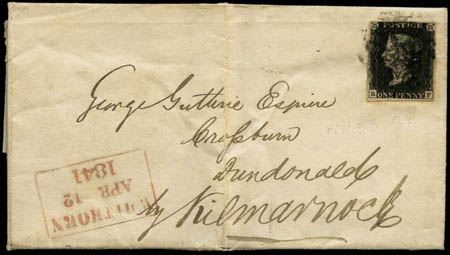 POSTAGE
ONE PENNY
George Guthrie Esqire
Crofsburn
Dundonald
by Kilmarnock
WHITHORN
APR 12
1841